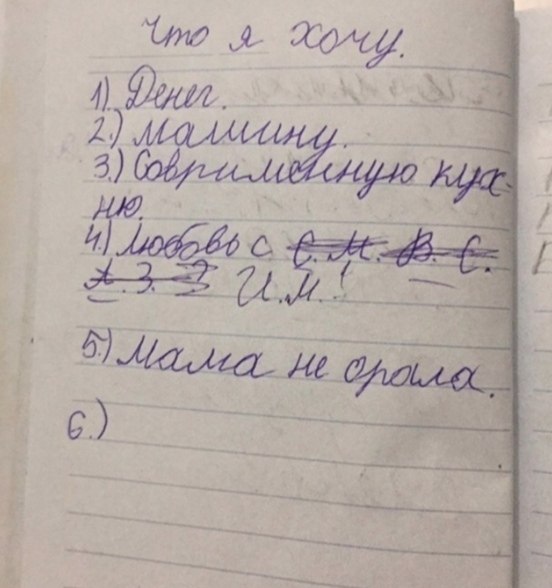 Что я хочу.
1). Денег.
2.) машину.
3.) Совримённую кух-
ню.
4.) любовь с С. М. В. С.
А. З. И.М.!
5.) Мама не орала.
6.)